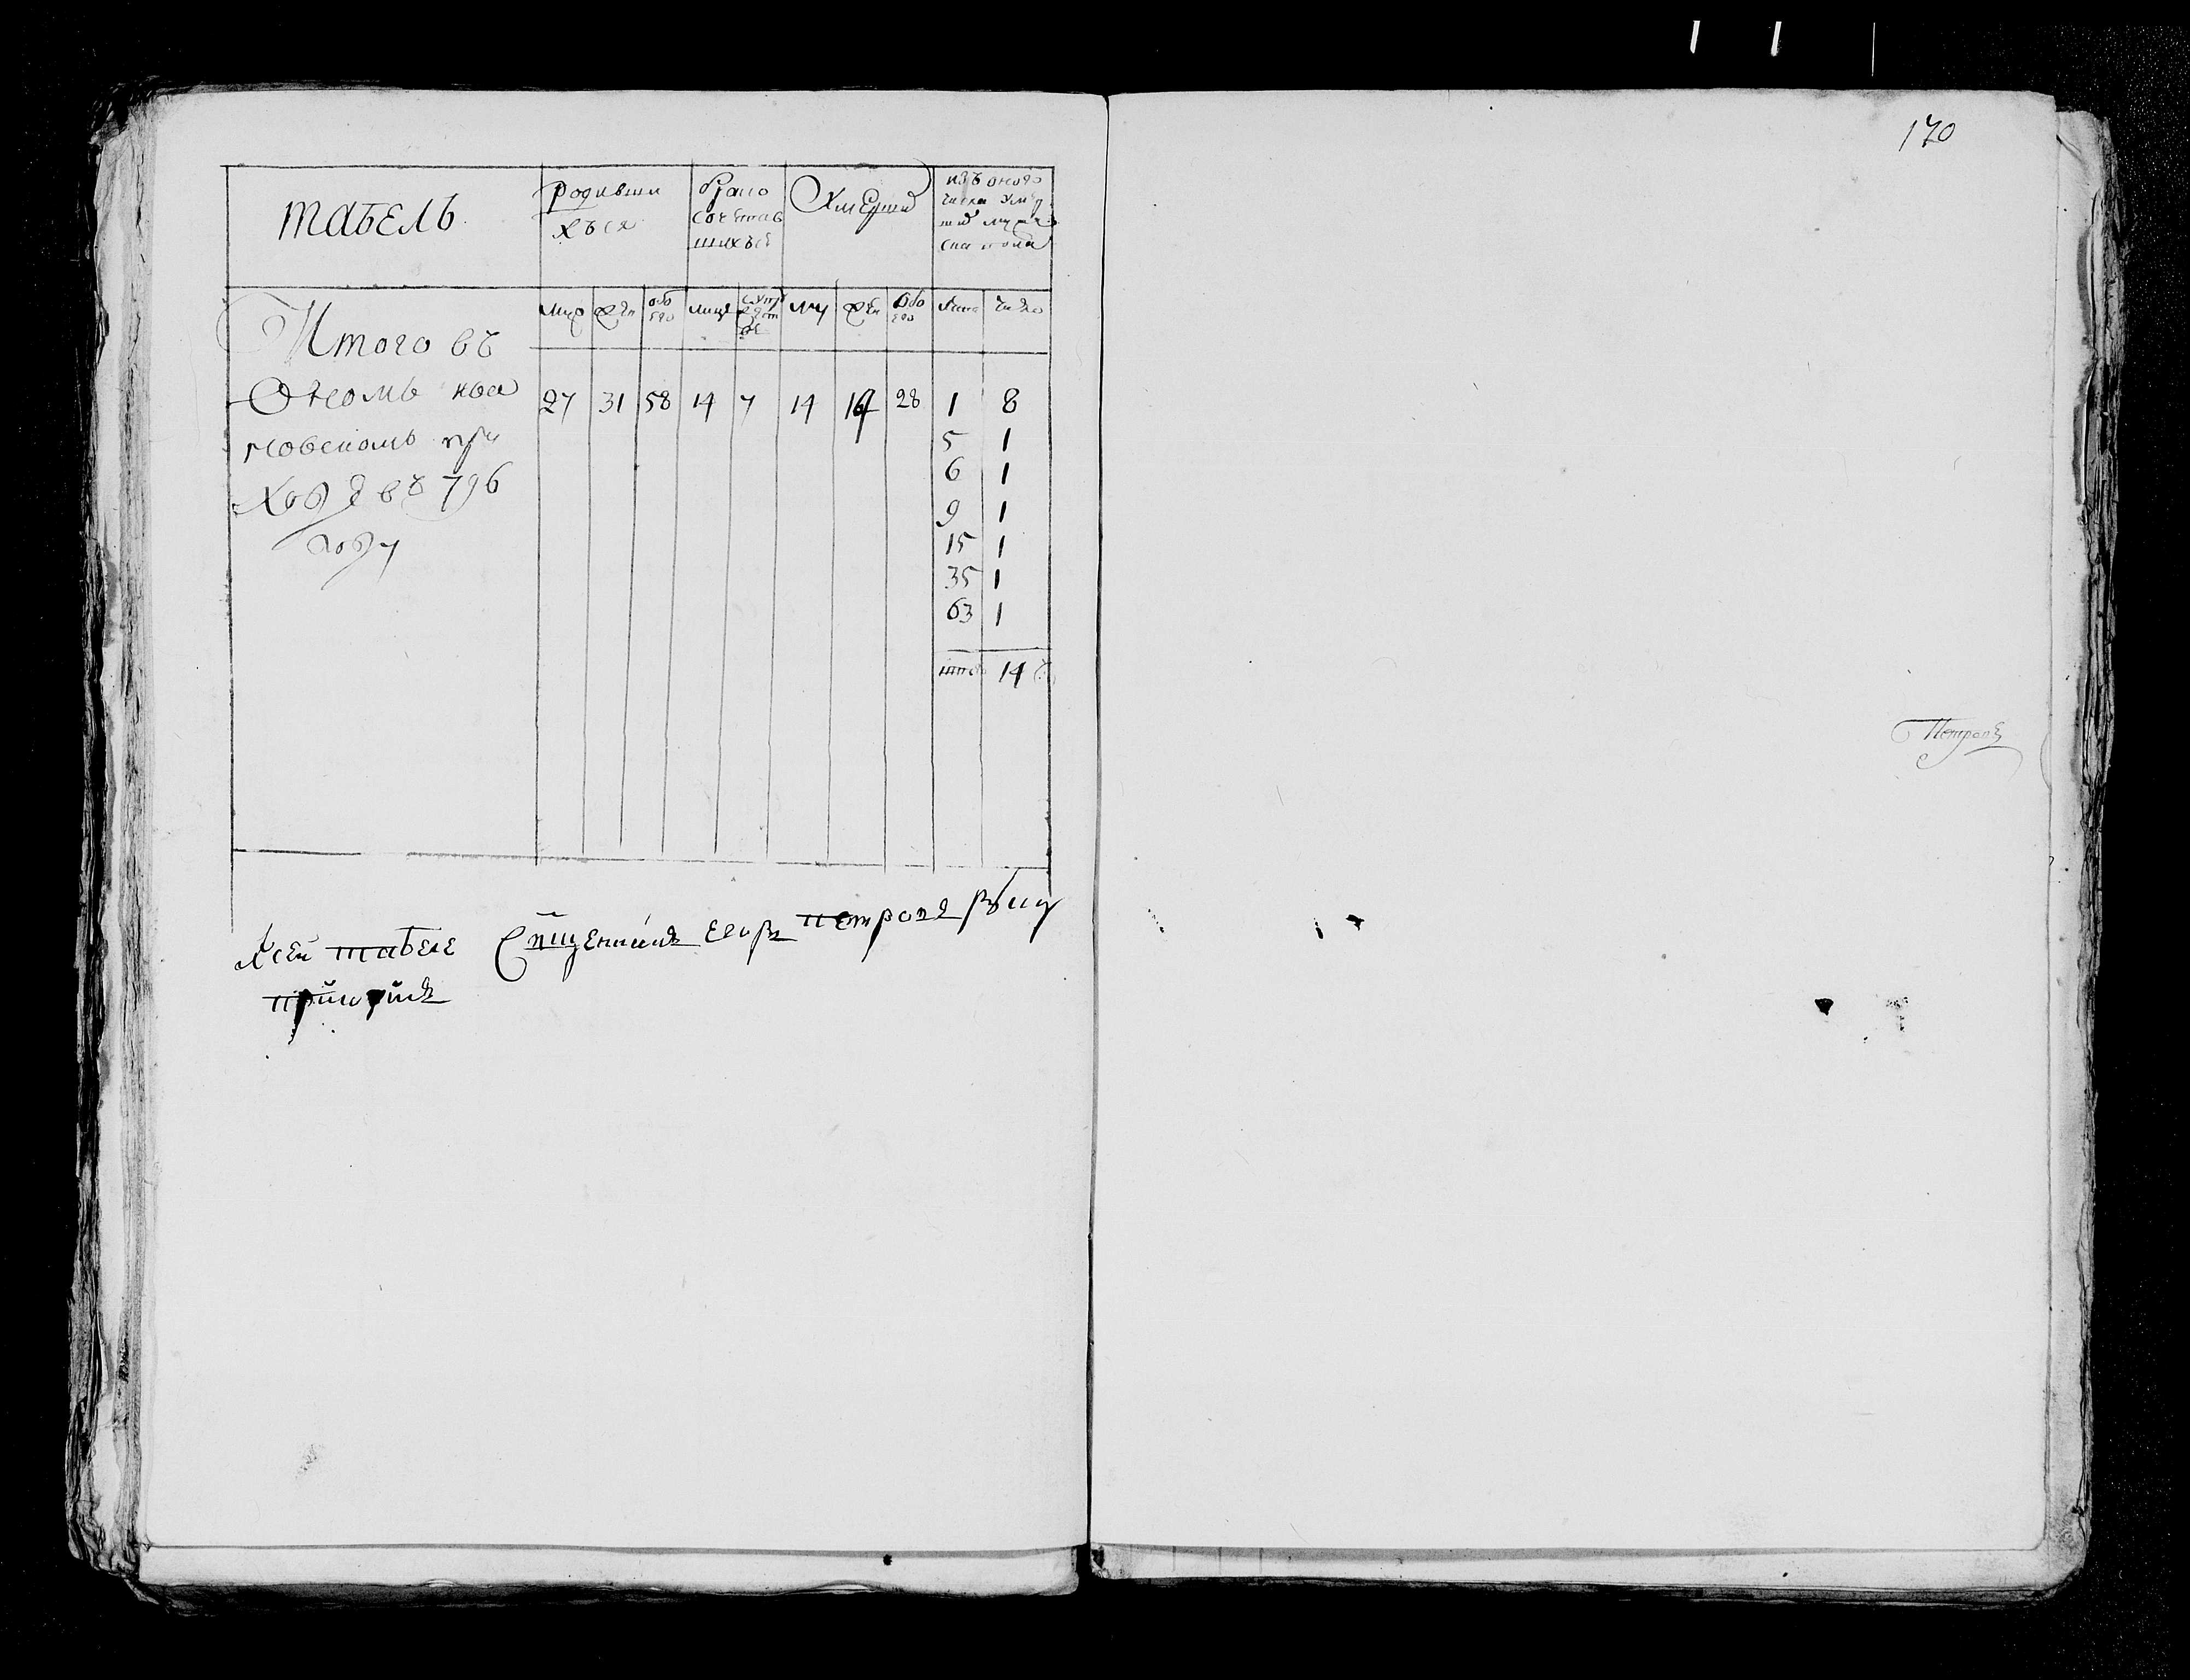 170
табель
родивши
хъся
брако
сочетав
шихъся
Умерши
изъ оного
числа умер
ших мужс
ска пола
муж жен обо его лице супр жест муж жен обо его лета число
Итого въ
Ѡтомъ
ковскомъ при
ходе въ 796
году
27 31 58 14 7 14 14 28 1 8
5 1
6 1
9 1
15 1
35 1
63 1
итого 14
Ксей табеле Священникъ Егоръ петровъ руку
приложилъ
Петровъ